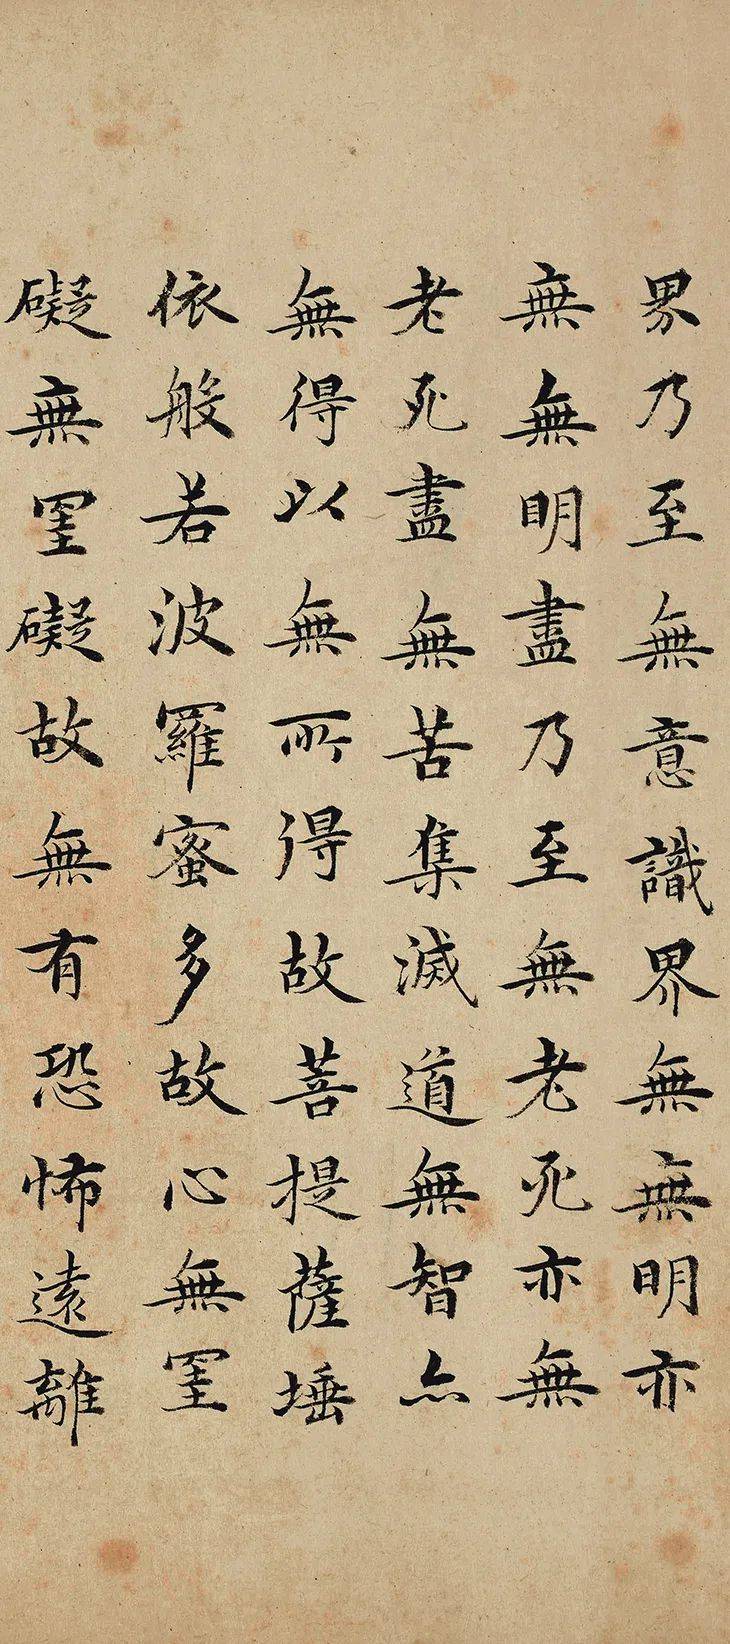 界乃至無意識界無無明亦
無無明盡乃至無老死亦無
老死盡無苦集滅道無智亦
無得以無所得故菩提薩埵
依般若波羅蜜多故心無罣
礙無罣礙故無有恐怖遠離